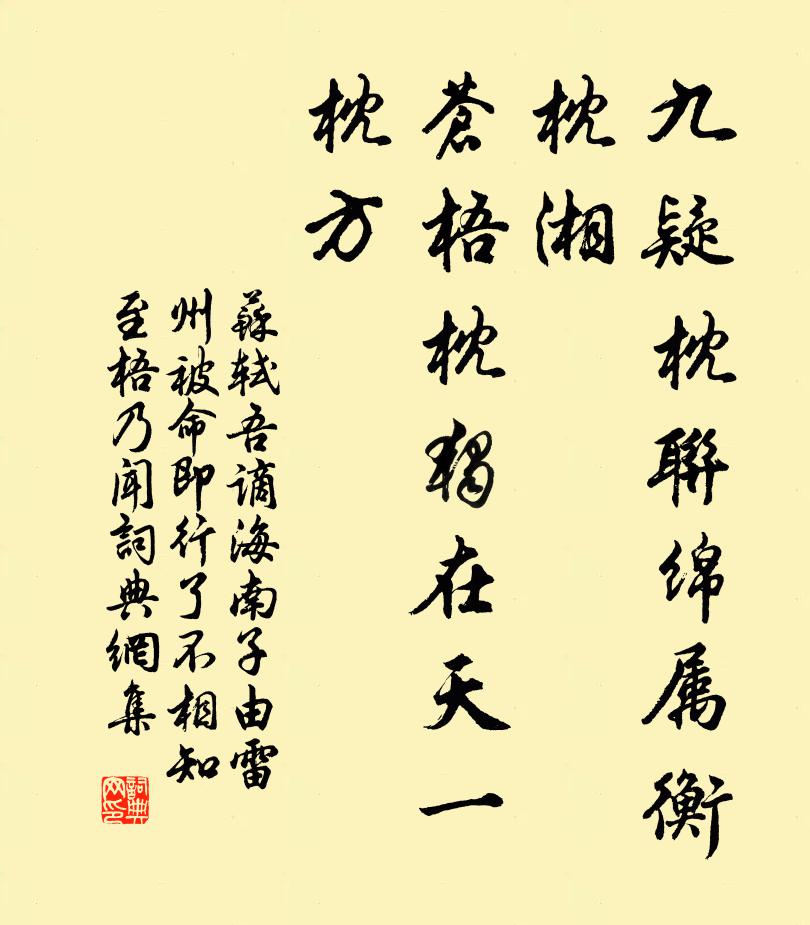 九疑枕聯绵属衡
枕湘
蒼梧枕獨在天一
枕方
蘇軾吾謫海南子由雷
州被命即行了不相知
至梧乃聞詞典網集
詞典
网印